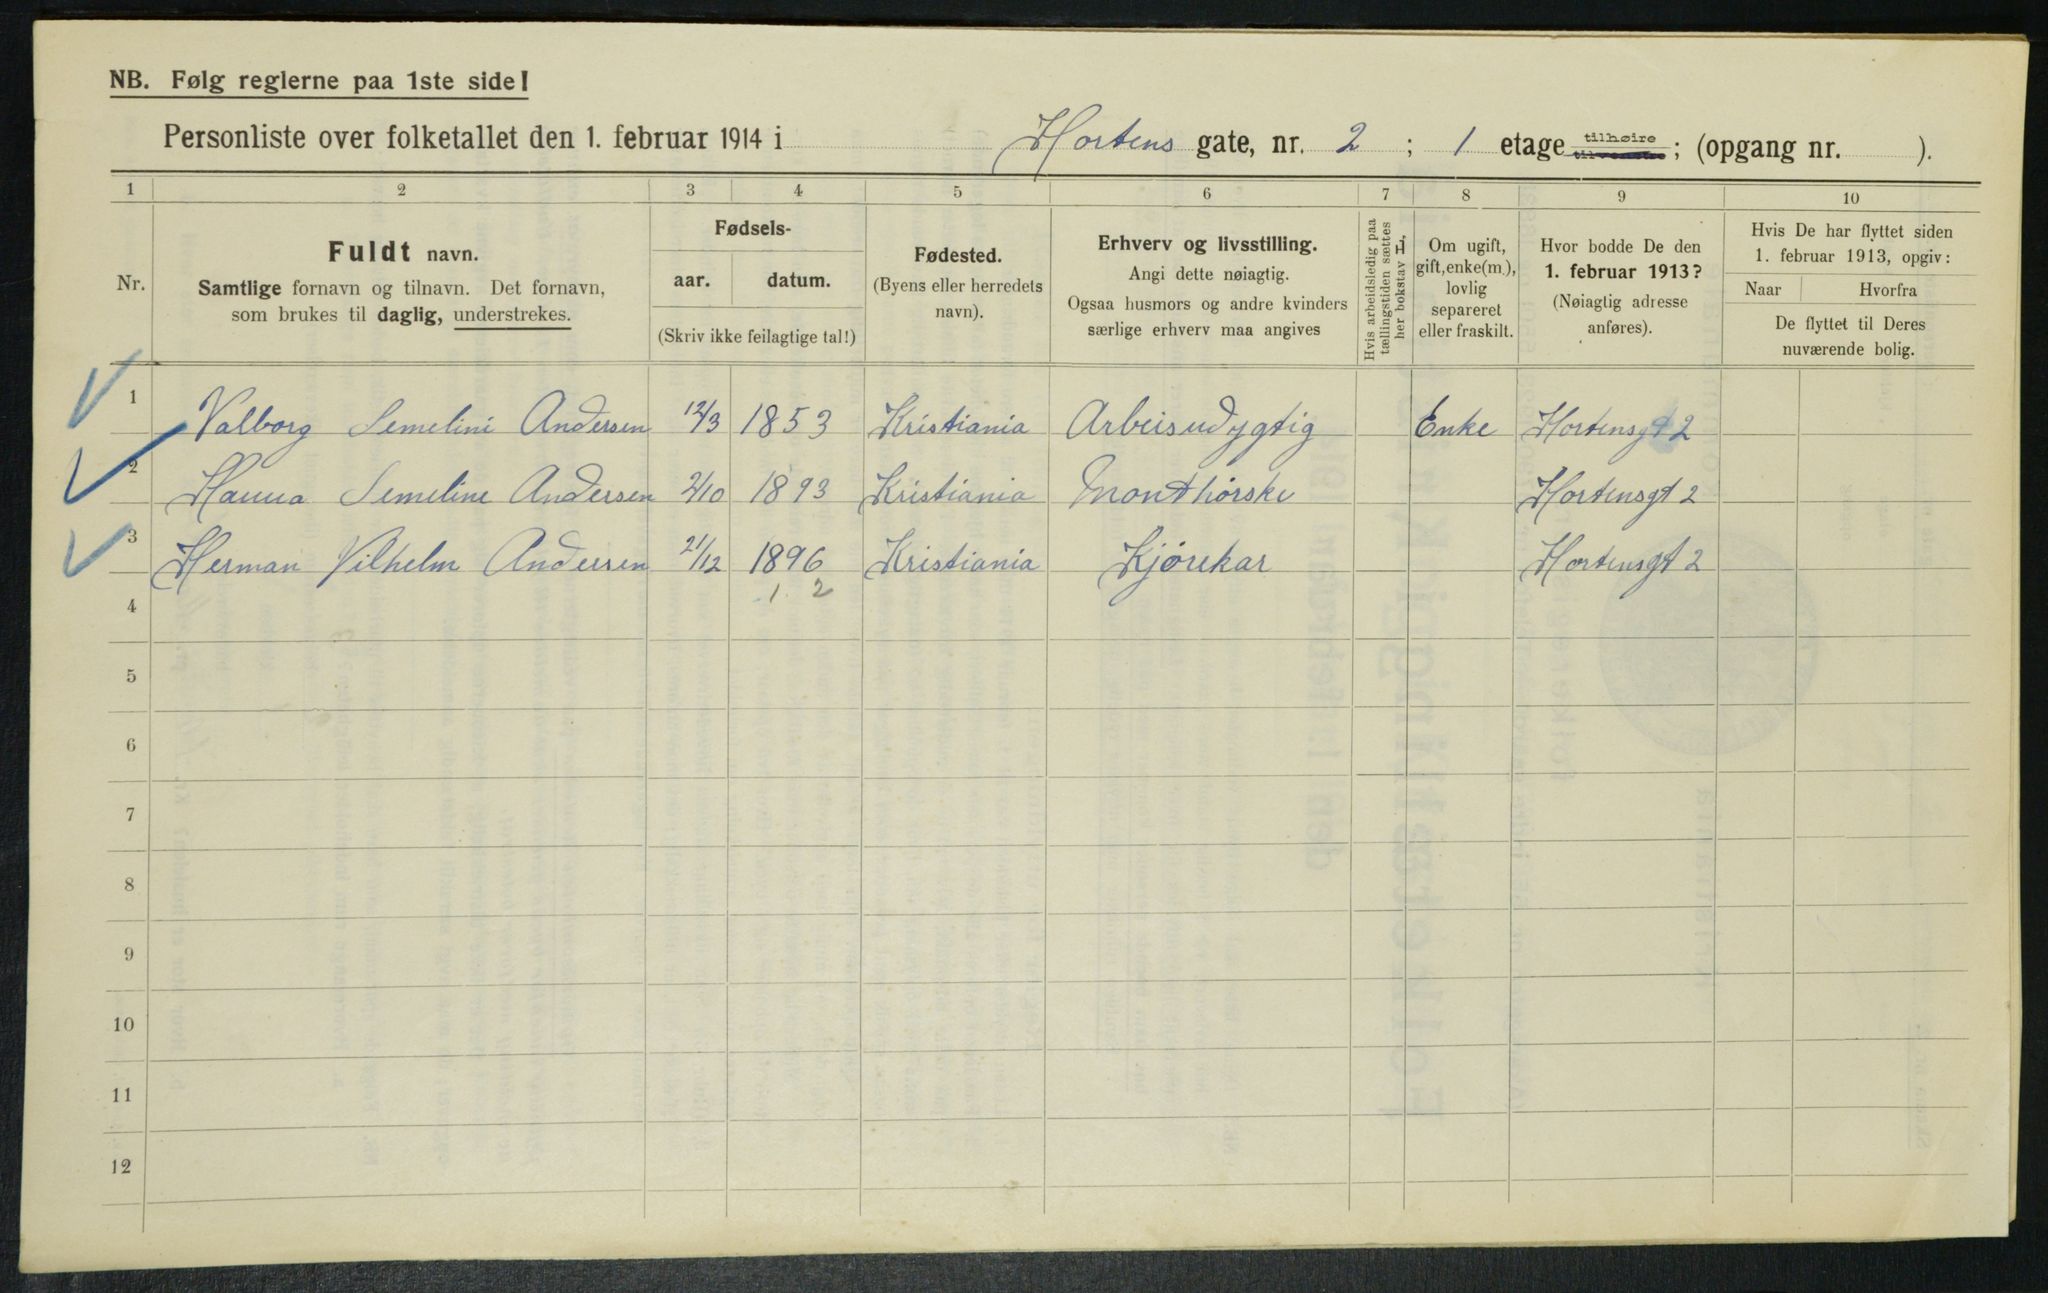 NB. Følg reglerne paa 1ste side!
Personliste over folketallet den 1. februar 1914 i Hortens gate, nr. 2 ; 1 etage tilhøire tilvenstre ; (opgang nr. ).
1 2 3 4 5 6 7 8 9 10
Nr.
Fuldt navn.
Samtlige fornavn og tilnavn. Det fornavn,
som brukes til daglig, understrekes.
Fødsels-
aar. datum.
(Skriv ikke feilagtige tal!)
Fødested.
(Byens eller herredets
navn).
Erhverv og livsstilling.
Angi dette nøiagtig.
Ogsaa husmors og andre kvinders
særlige erhverv maa angives
Hvis arbeidsledig paa
tællingstiden sættes
her bokstav L,
Om ugift,
gift, enke(m.),
lovlig
separeret
eller fraskilt.
Hvor bodde De den
1. februar 1913?
(Nøiagtig adresse
anføres).
Hvis De har flyttet siden
1. februar 1913, opgiv:
Naar Hvorfra
De flyttet til Deres
nuværende bolig.
1 Valborg Semelini Andersen 12/3 1853 Kristiania Arbeisudygtig Enke Hortensgt 2
2 Hanna Semeline Andersen 2/10 1893 Kristiania Monthørske Hortensgt 2
3 Herman Vilhelm Andersen 21/12 1896 Kristiania Kjørekar Hortensgt 2
1 2
4
5
6
7
8
9
10
11
12